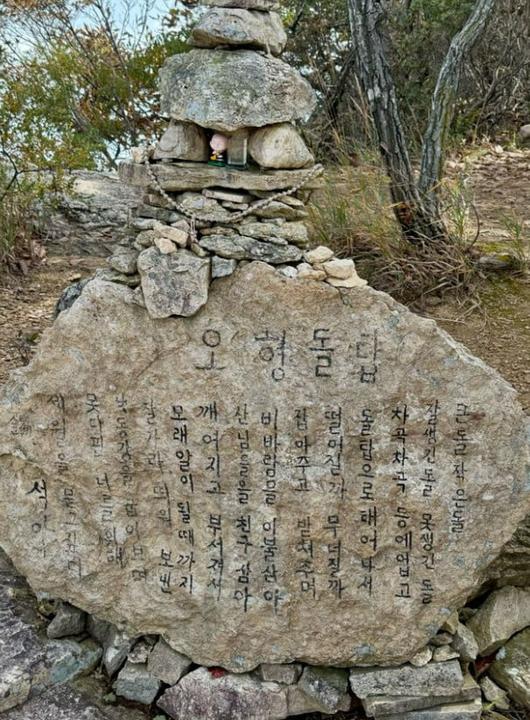 오 형 돌 탑
큰 돌 작은돌
잘생긴 돌 못생긴 돌
차곡차곡 등에업고
돌탑으로 태어나서
떨어질까 무너질까
잡아주고 받쳐주며
비바람을 이불삼아
산님들을 친구삼아
깨어지고 부서져서
모래알이 될때까지
잘가라 띄워 보낸
낙동강을 굽이보며
못다핀 너를 위해
세월을